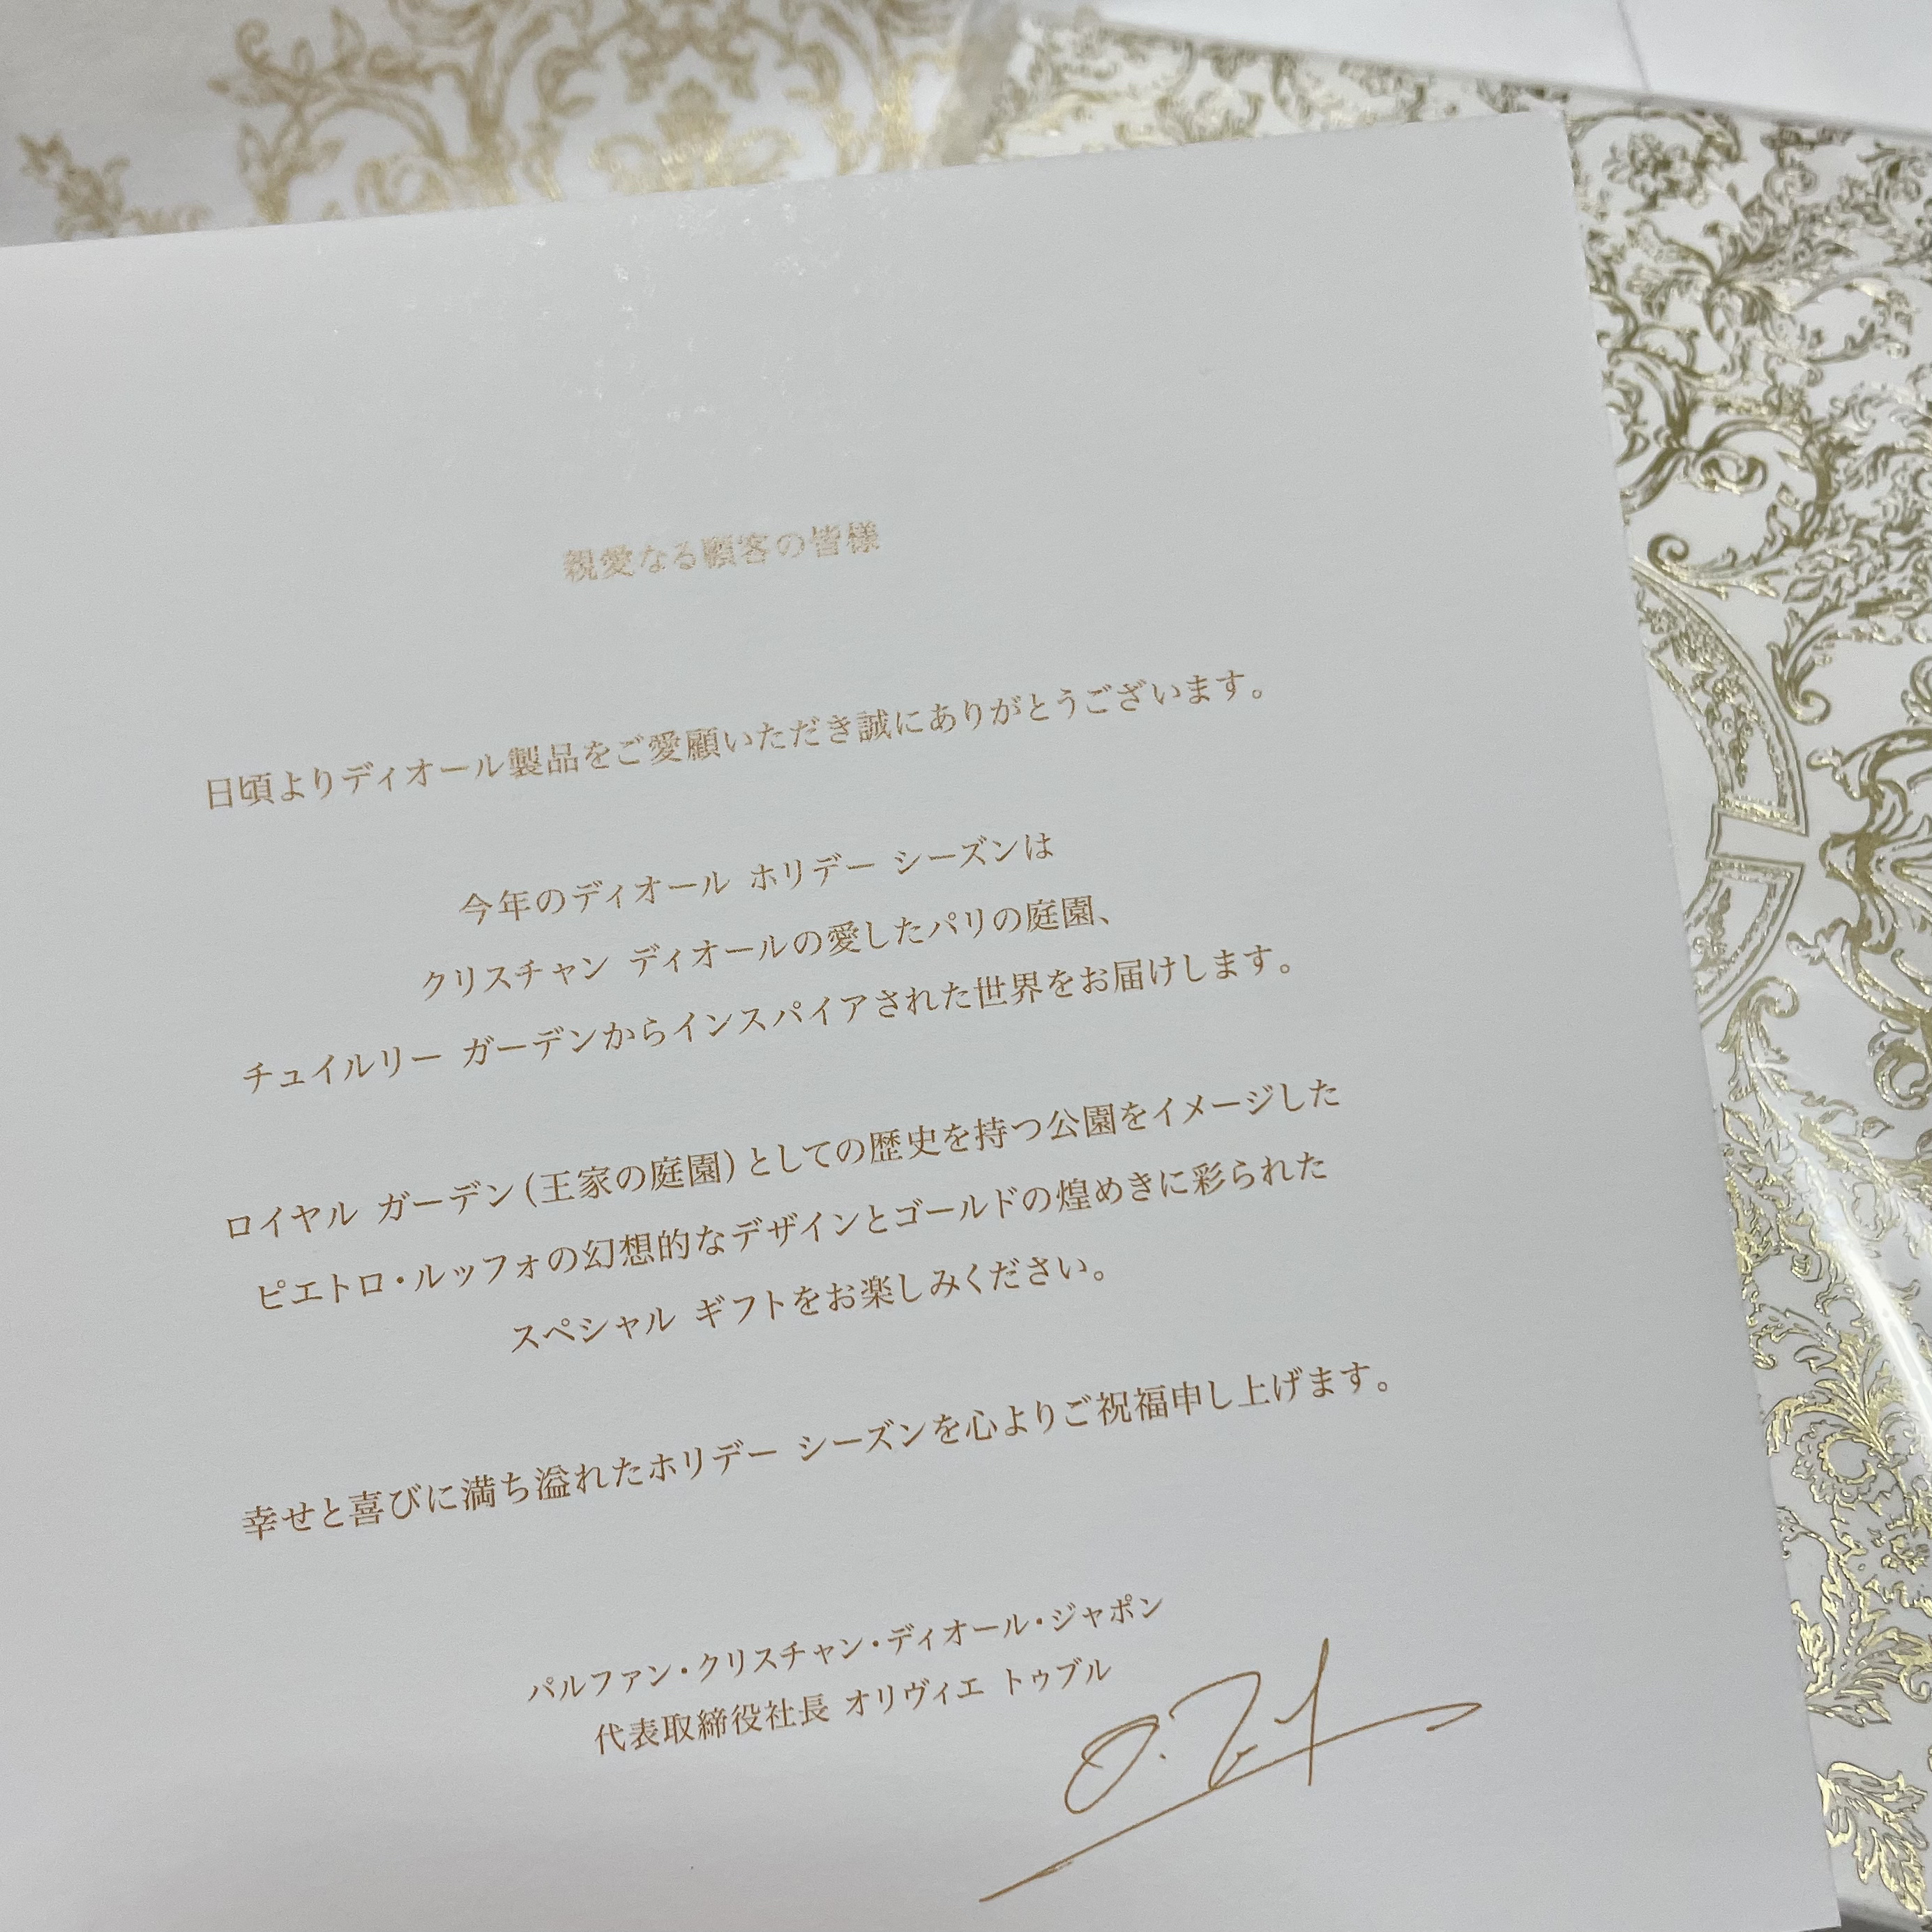 親愛なる顧客の皆様
日頃よりディオール製品をご愛顧いただき誠にありがとうございます。
今年のディオール ホリデー シーズンは
クリスチャン ディオールの愛したパリの庭園、
チュイルリー ガーデンからインスパイアされた世界をお届けします。
ロイヤル ガーデン(王家の庭園)としての歴史を持つ公園をイメージした
ピエトロ・ルッフォの幻想的なデザインとゴールドの煌めきに彩られた
スペシャル ギフトをお楽しみください。
幸せと喜びに満ち溢れたホリデー シーズンを心よりご祝福申し上げます。
パルファン・クリスチャン・ディオール・ジャポン
代表取締役社長 オリヴィエ トゥブル